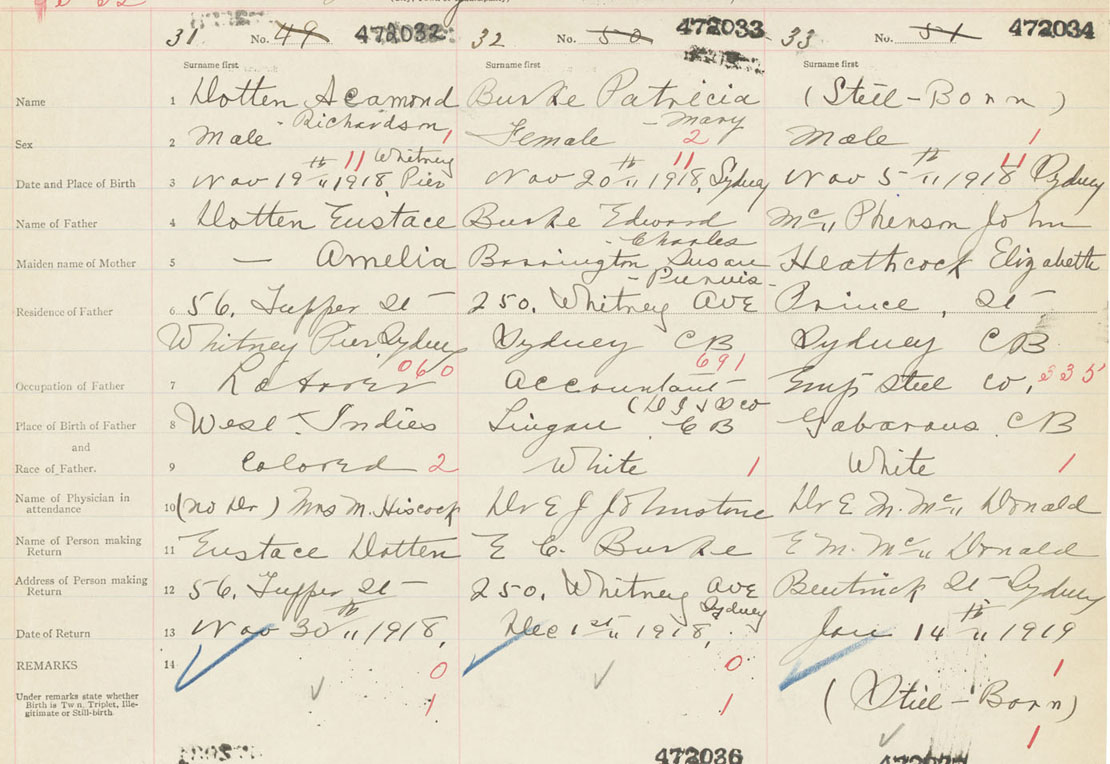 31 No. 49 472032 32 No. 50 472033 33 No. 51 472034
Surname first Surname first Surname first
Name 1 Dotten Acamond Burke Patricia (Still-Born)
- Richardson - Mary
Sex 2 Male 1 Female 2 Male 1
th 11 Whitney th 11 th 11
Date and Place of Birth 3 Nov 19 " 1918, Pier Nov 20 " 1918, Sydney Nov 5 " 1918 Sydney
Name of Father 4 Dotten Eustace Burke Edward Mc" Pherson John
- Charles
Maiden name of Mother 5 — Amelia Barrington Susan Heathcock Elizabeth
- Purvis -
Residence of Father 6 56, Tupper St - 250, Whitney Ave Prince, St -
Whitney Pier, Sydney Sydney CB Sydney CB
060 691
Occupation of Father 7 Laborer Accountant Emp Steel Co, 335
(D I & S Co
Place of Birth of Father 8 West-Indies Lingan CB Gabarous CB
and
Race of Father. 9 Colored 2 White 1 White 1
Name of Physician in
attendance 10 (no Dr) Mrs M. Hiscock Dr E J Johnstone Dr E M. Mc" Donald
Name of Person making
Return 11 Eustace Dotten E C. Burke E M. Mc" Donald
Address of Person making
Return 12 56, Tupper St - 250, Whitney Ave Bentinck St - Sydney
Sydney
Date of Return 13 Nov 30 th " 1918, Dec 1 st " 1918, Jan 14 th " 1919
REMARKS 14 0 0 1
Under remarks state whether
Birth is Twin, Triplet, Ille-
gitimate or Still-birth. 1 1 (Still-Born)
1
472036